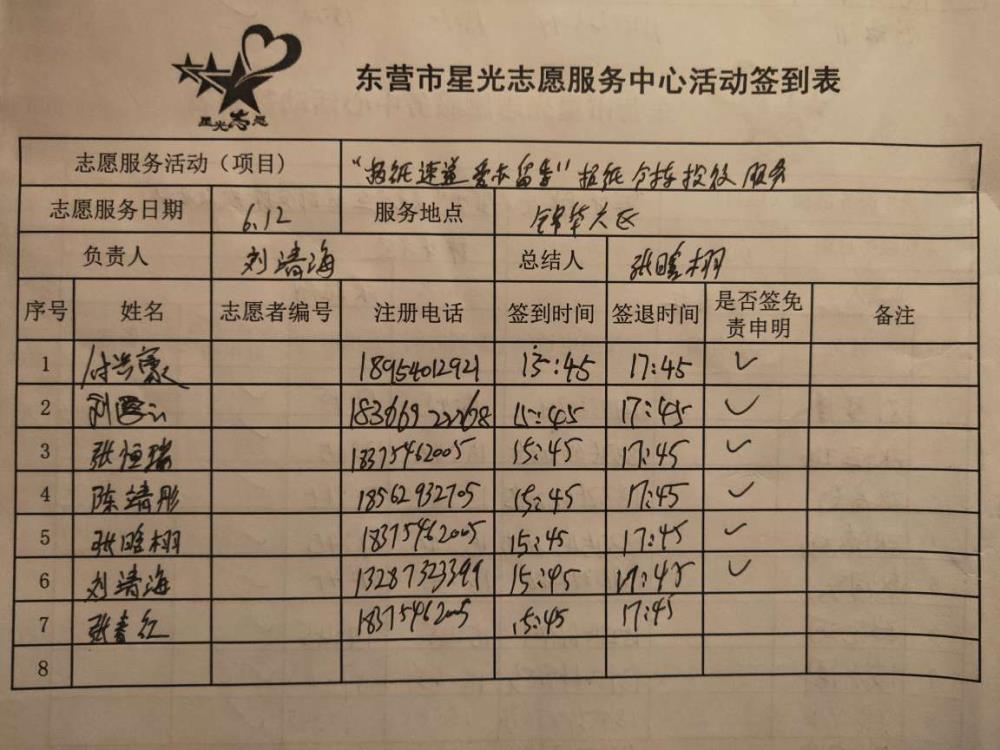 星光志愿
东营市星光志愿服务中心活动签到表
志愿服务活动（项目） "报纸速递 爱心留香" 报纸分拣投放服务
志愿服务日期 6.12 服务地点 锦华大区
负责人 刘清海 总结人 张晗栩
序号 姓名 志愿者编号 注册电话 签到时间 签退时间 是否签免责申明 备注
1 18954012921 15:45 17:45 ✓
2 刘 18366922268 15:45 17:45 ✓
3 张恒瑞 18375462005 15:45 17:45 ✓
4 陈靖彤 18562932705 15:45 17:45 ✓
5 张晗栩 18375462005 15:45 17:45 ✓
6 刘清海 13287323399 15:45 17:45 ✓
7 张春红 18375462005 15:45 17:45
8